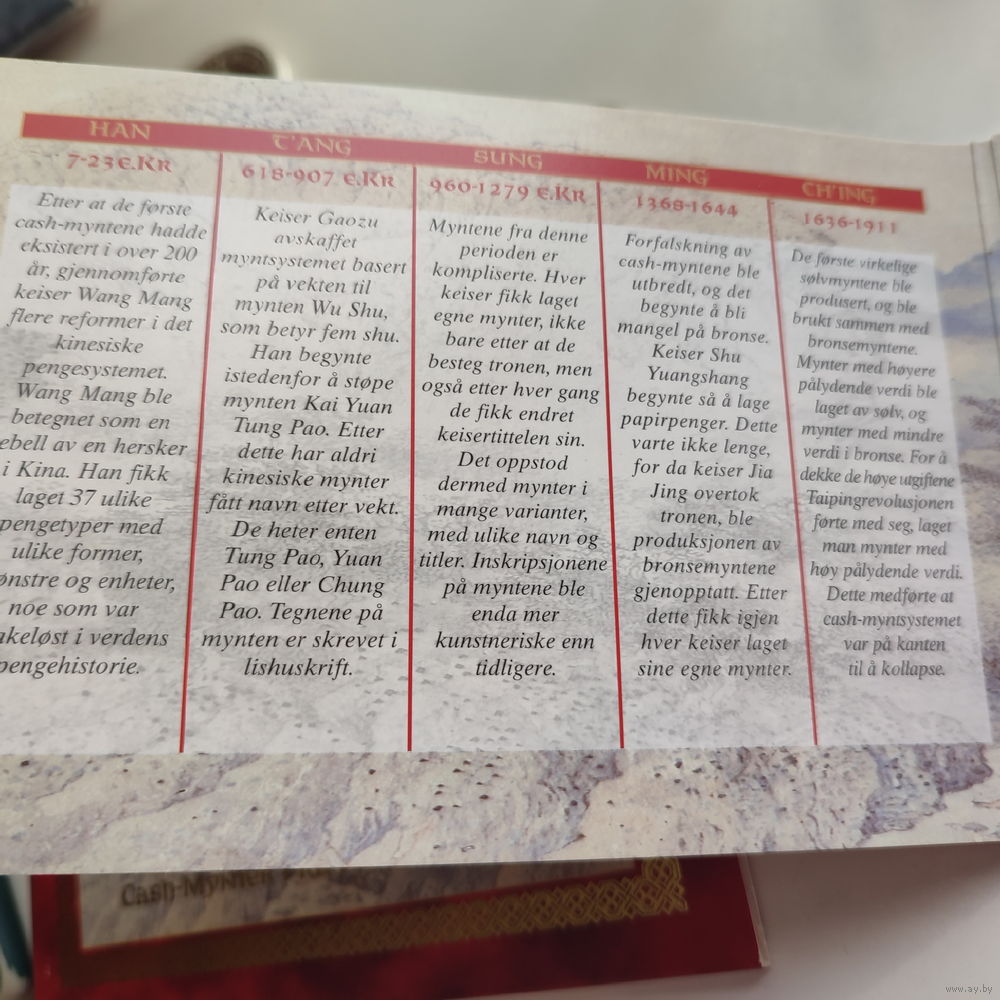 HAN
7-23 E.KR
Etter at de første
cash-myntene hadde
eksistert i over 200
år, gjennomførte
keiser Wang Mang
flere reformer i det
kinesiske
pengesystemet.
Wang Mang ble
betegnet som en
ebell av en hersker
i Kina. Han fikk
laget 37 ulike
pengetyper med
ulike former,
ønstre og enheter,
noe som var
akeløst i verdens
pengehistorie.
T'ANG
618-907 E.KR
Keiser Gaozu
avskaffet
myntsystemet basert
på vekten til
mynten Wu Shu,
som betyr fem shu.
Han begynte
istedenfor å støpe
mynten Kai Yuan
Tung Pao. Etter
dette har aldri
kinesiske mynter
fått navn etter vekt.
De heter enten
Tung Pao, Yuan
Pao eller Chung
Pao. Tegnene på
mynten er skrevet i
lishuskrift.
SUNG
960-1279 E.KR
Myntene fra denne
perioden er
kompliserte. Hver
keiser fikk laget
egne mynter, ikke
bare etter at de
besteg tronen, men
også etter hver gang
de fikk endret
keisertittelen sin.
Det oppstod
dermed mynter i
mange varianter,
med ulike navn og
titler. Inskripsjonene
på myntene ble
enda mer
kunstneriske enn
tidligere.
MING
1368-1644
Forfalskning av
cash-myntene ble
utbredt, og det
begynte å bli
mangel på bronse.
Keiser Shu
Yuangshang
begynte så å lage
papirpenger. Dette
varte ikke lenge,
for da keiser Jia
Jing overtok
tronen, ble
produksjonen av
bronsemyntene
gjenopptatt. Etter
dette fikk igjen
hver keiser laget
sine egne mynter.
CH'ING
1636-1911
De første virkelige
sølvmyntene ble
produsert, og ble
brukt sammen med
bronsemyntene.
Mynter med høyere
pålydende verdi ble
laget av sølv, og
mynter med mindre
verdi i bronse. For å
dekke de høye utgiftene
Taipingrevolusjonen
førte med seg, laget
man mynter med
høy pålydende verdi.
Dette medførte at
cash-myntsystemet
var på kanten
til å kollapse.
Cash-Mynten
www.ay.by